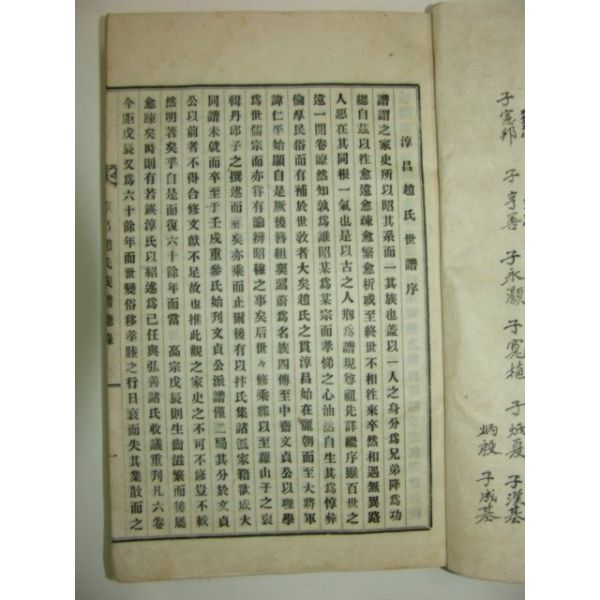 淳昌趙氏世譜序
譜謂之家史所以昭其系而一其族也蓋以一人之身分爲兄弟降爲功
緦自茲以徃愈遠愈疎愈繁愈析或至終世不相徃來卒然相遇無異路
人惡在其同根一氣也是以古之人刱爲譜規尊祖先詳繼序雖百世之
遠一開卷瞭然知孰爲誰昭某爲某宗而孝悌之心油然自生其爲惇彝
倫厚民俗而有補於世敎者大矣趙氏之貫淳昌始在麗朝而至大將軍
諱仁平始顯自是厥後簪組蟬嫣蔚爲名族四傳至中齋文貞公以理學
爲世儒宗而亦嘗有論辨昭穆之事矣后世々修乘牒以至蘿山子之裒
輯丹邱子之撰述而至矣亦乘而止爾後有以抃氏集諸派家籍欲成大
同譜未就而卒至于壬戌重參氏始刋文貞公派譜僅二局其分於文貞
公以前者不得合修文獻不足故也推此觀之家史之不可不修豈不較
然明著矣乎自是而復六十餘年而當 高宗戊辰則生齒滋繁而後屬
愈疎矣時則有若鍈淳氏以紹述爲己任與弘善諸氏收議重刋凡六卷
今距戊辰又爲六十餘年而世變俗移孝睦之行日衰而失其業散而之
淳昌趙氏族譜總錄
一
子憲邦 子亨善 子永灝 子寬植 子炳夏 子漢基
炳殷 子成基